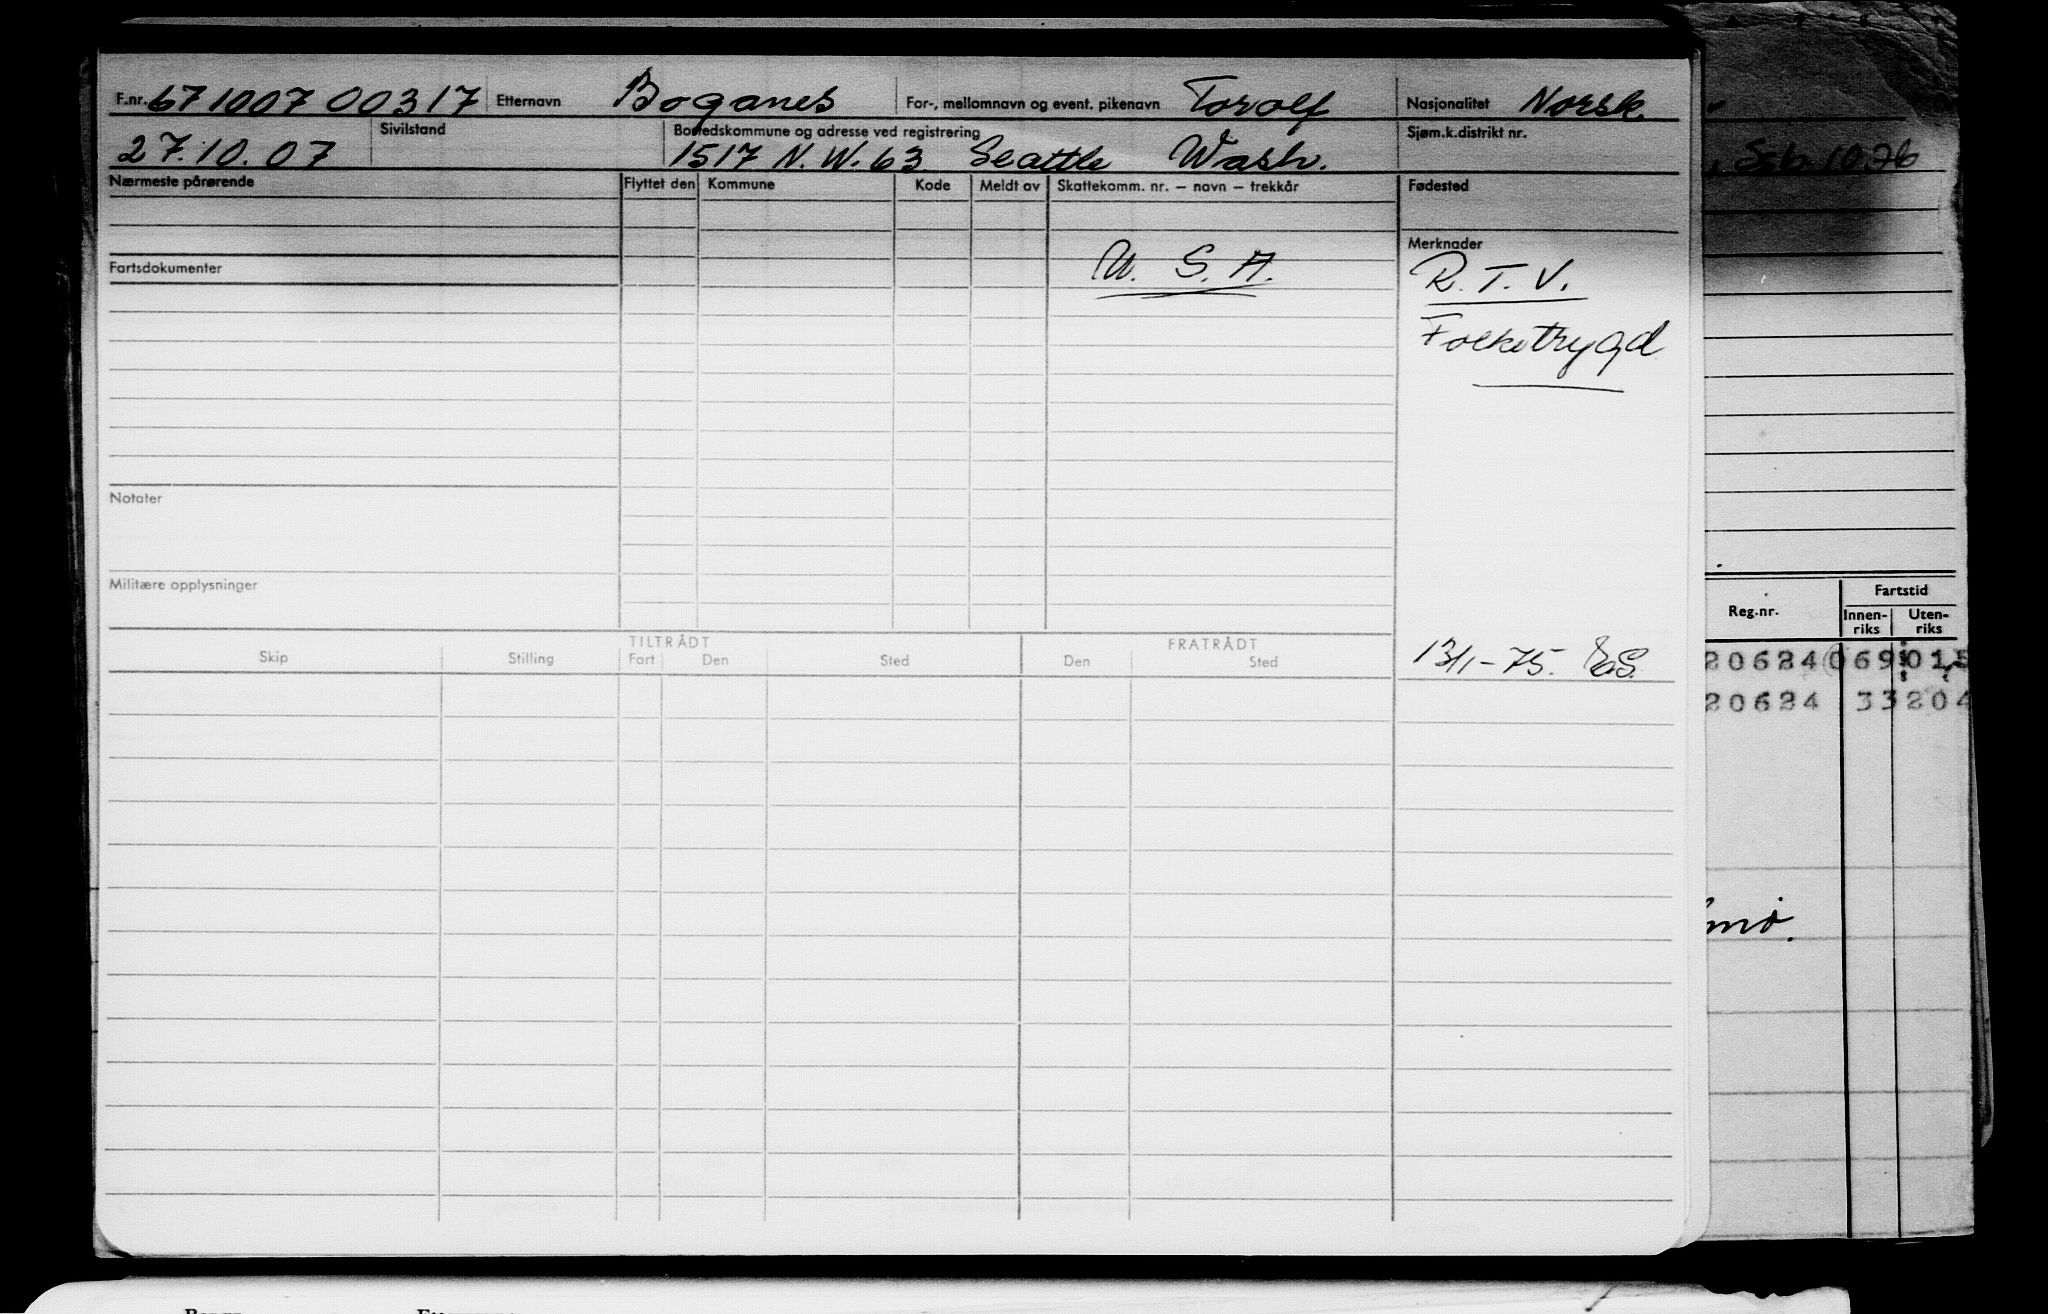 F.nr. 671007 00317 Etternavn Boganes For-, mellomnavn og event. pikenavn Torolf Nasjonalitet Norsk.
27.10.07 Sivilstand Bostedskommune og adresse ved registrering 1517 N.W. 63. Seattle Wash. Sjøm.k.distrikt nr.
Nærmeste pårørende Flyttet den Kommune Kode Meldt av Skattekomm. nr. – navn – trekkår Fødested
U. S. A. Merknader
Fartsdokumenter R.T.V.
Folketrygd
Notater
Militære opplysninger
Reg.nr. Fartstid
Innen-riks Uten-riks
TILTRÅDT FRATRÅDT
Skip Stilling Fart Den Sted Den Sted 13/1-75.
20624 069 015
20624 33 204